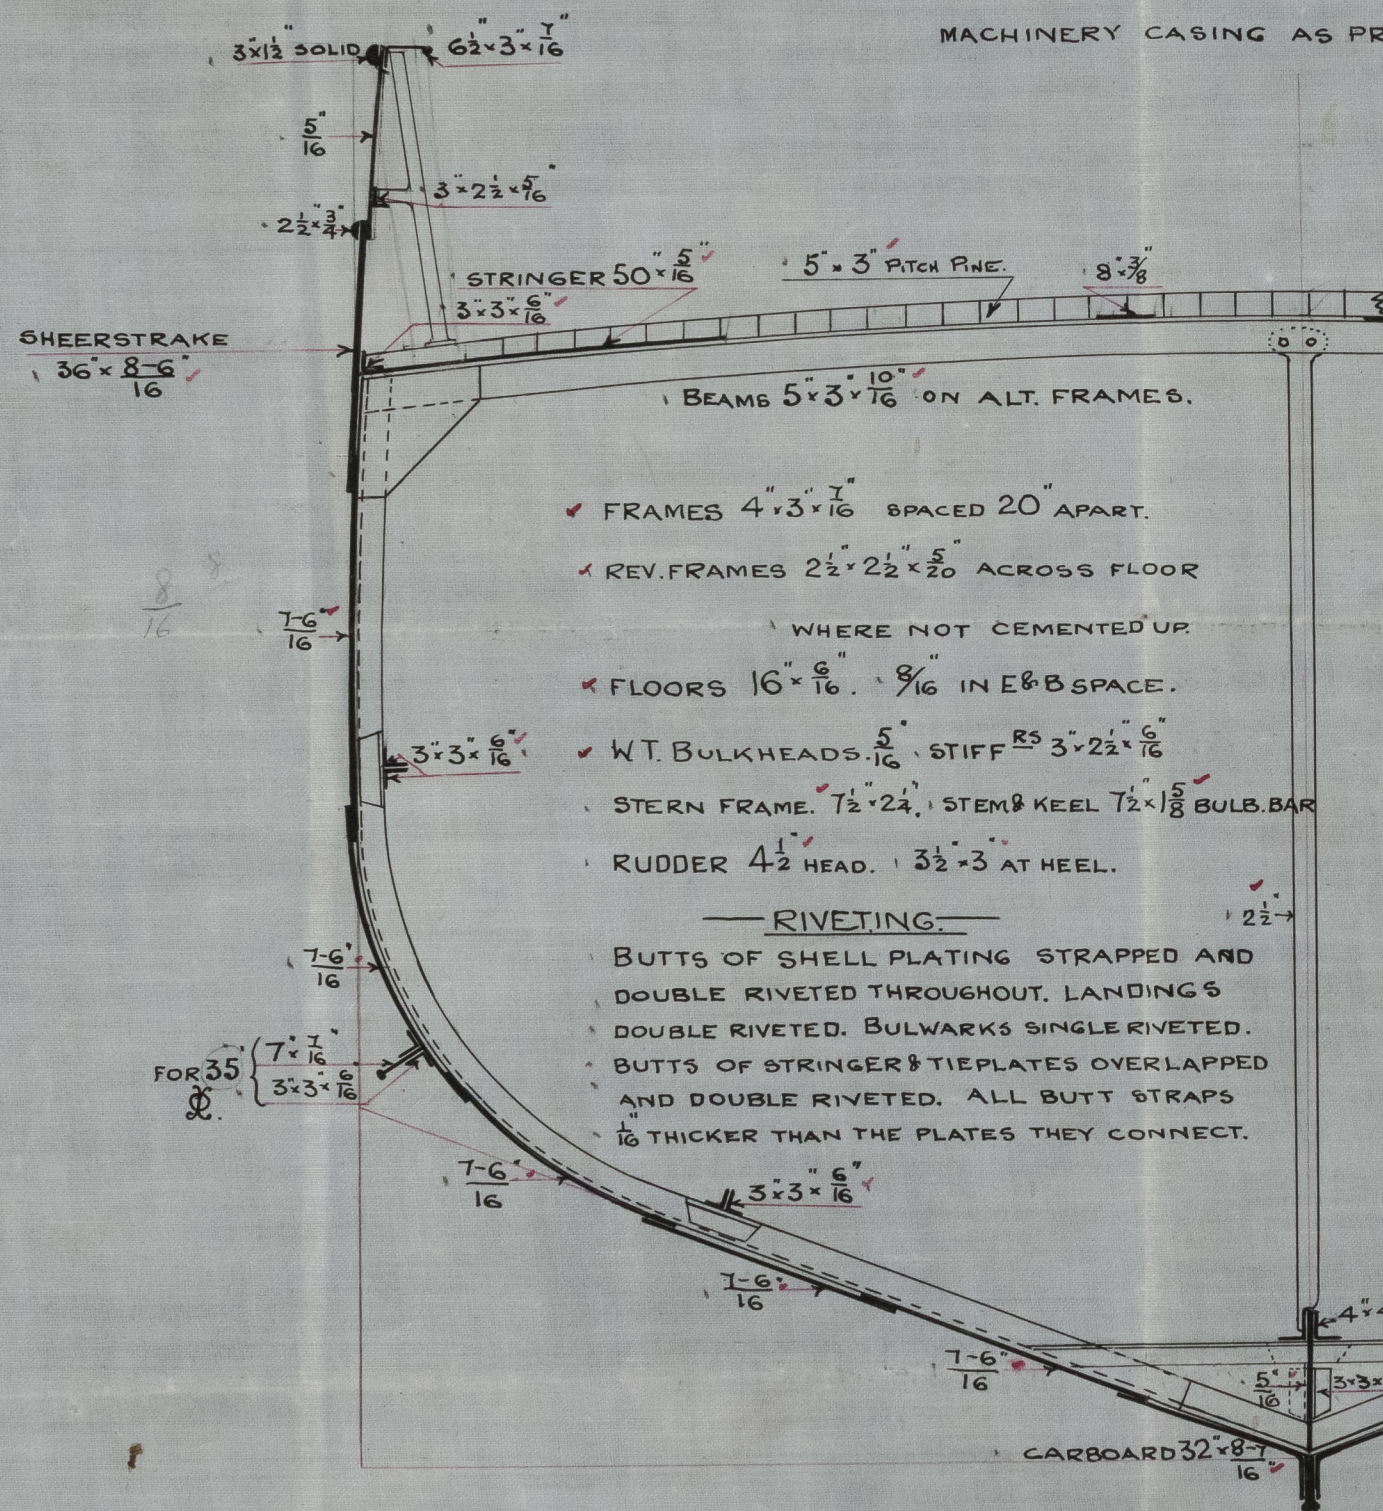 MACHINERY CASING AS PR
3"×1½" SOLID
6½"×3"×7/16"
5/16"
3"×2½"×5/16"
2½"×¾"
STRINGER 50"×5/16"
3"×3"×6/16"
5"×3" PITCH PINE.
8"×3/8"
SHEERSTRAKE
36"×8-6/16"
BEAMS 5"×3"×10/16" ON ALT. FRAMES.
FRAMES 4"×3"×7/16" SPACED 20" APART.
REV. FRAMES 2½"×2½"×5/20" ACROSS FLOOR
WHERE NOT CEMENTED UP.
8/16
7-6/16"
FLOORS 16"×6/16". 8/16" IN E&B SPACE.
3"×3"×6/16"
W.T. BULKHEADS. 5/16" STIFFRS 3"×2½"×6/16"
STERN FRAME. 7½"×2¼". STEM & KEEL 7½"×1⅝" BULB. BAR
RUDDER 4½" HEAD. 3½"×3" AT HEEL.
2½"
RIVETING.
BUTTS OF SHELL PLATING STRAPPED AND
DOUBLE RIVETED THROUGHOUT. LANDINGS
DOUBLE RIVETED. BULWARKS SINGLE RIVETED.
BUTTS OF STRINGER & TIEPLATES OVERLAPPED
AND DOUBLE RIVETED. ALL BUTT STRAPS
1/16" THICKER THAN THE PLATES THEY CONNECT.
7-6/16"
FOR 35'
7"×7/16"
3"×3"×6/16"
7-6/16"
3"×3"×6/16"
7-6/16"
4"×4
7-6/16"
5/16"
3×3×
CARBOARD 32"×8-7/16"